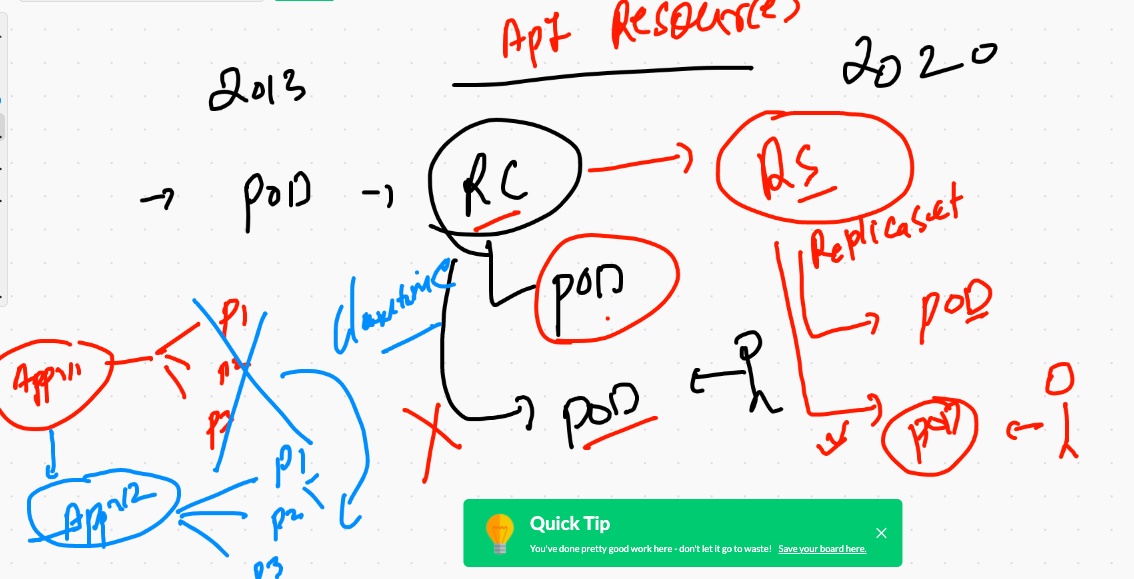 Api Resources
2013
2020
→ POD →
RC
→
RS
Replicaset
POD
POD
POD
POD
downtime
App v1
P1
P2
P3
App v2
P1
P2
P3
Quick Tip
You've done pretty good work here - don't let it go to waste! Save your board here.